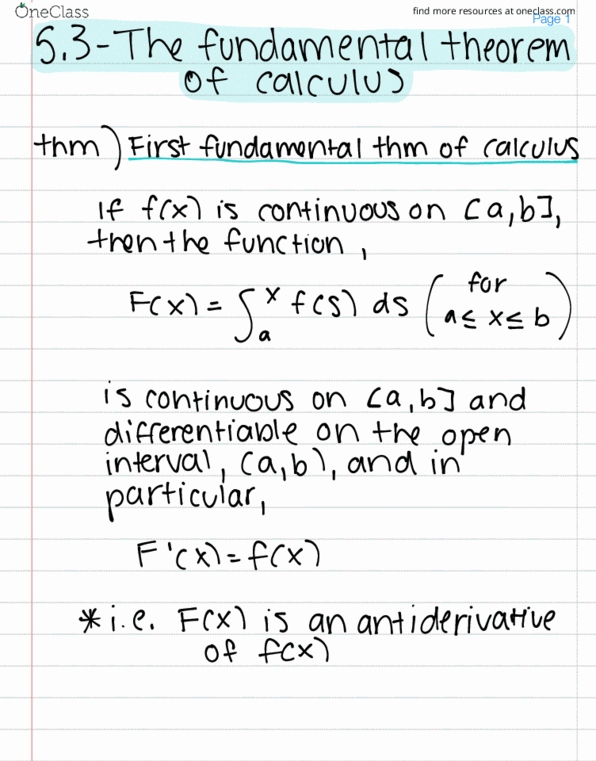 OneClass
find more resources at oneclass.com
Page 1
5.3-The fundamental theorem
of calculus
thm) First fundamental thm of calculus
If f(x) is continuous on [a,b],
then the function,
F(x) = ∫ₐˣ f(s) ds (for a ≤ x ≤ b)
is continuous on [a,b] and
differentiable on the open
interval, (a,b), and in
particular,
F'(x) = f(x)
*i.e. F(x) is an antiderivative
of f(x)